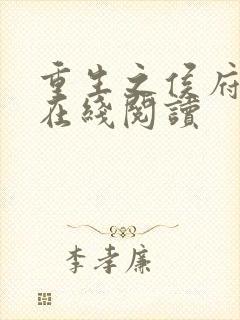 重生之侯府
在綫閱讀
李孝廉